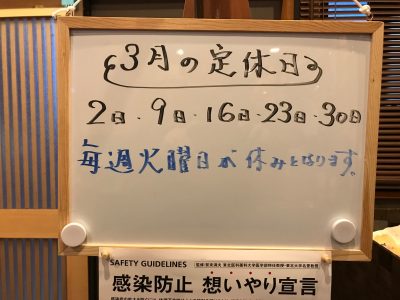 3月の定休日
2日・9日・16日・23日・30日
毎週火曜日が休みとなります。
SAFETY GUIDELINES
感染防止 想いやり宣言